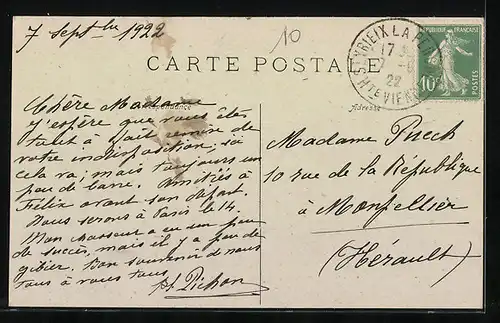 7 Septbre 1922
10
CARTE POSTALE
Correspondance
Adresse
ST YRIEIX LA PERCHE
17
7 - 9
22
HTE VIENNE
REPUBLIQUE FRANÇAISE
10c
POSTES
Chère Madame
j'espère que vous êtes
tout à fait remise de
votre indisposition; ici
cela va; mais toujours un
peu de barre. Amitiés à
Félix avant son départ.
Nous serons à Paris le 14.
Mon chasseur a eu un peu
de succès, mais il y a peu de
gibier. Bon souvenir de nous
tous à vous tous
Pichon
Madame Puech
10 rue de la République
à Montpellier
(Hérault)